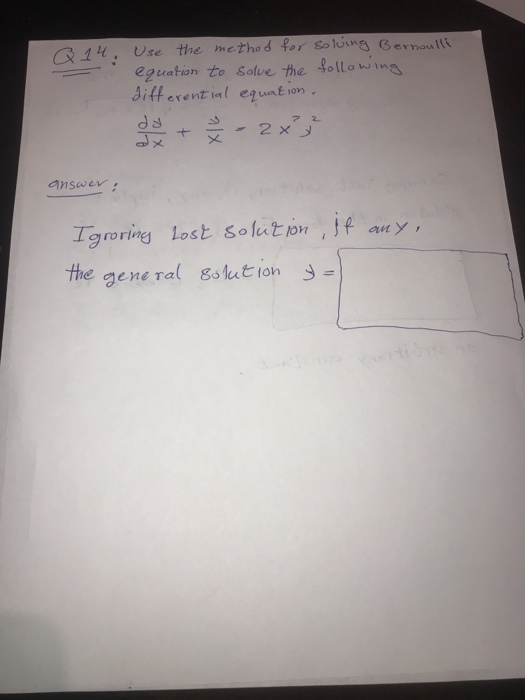 Q 14: Use the method for solving Bernoulli
equation to solve the following
differential equation.
dy/dx + y/x = 2x⁷y²
answer:
Igroring Lost solution, if any,
the general solution y =